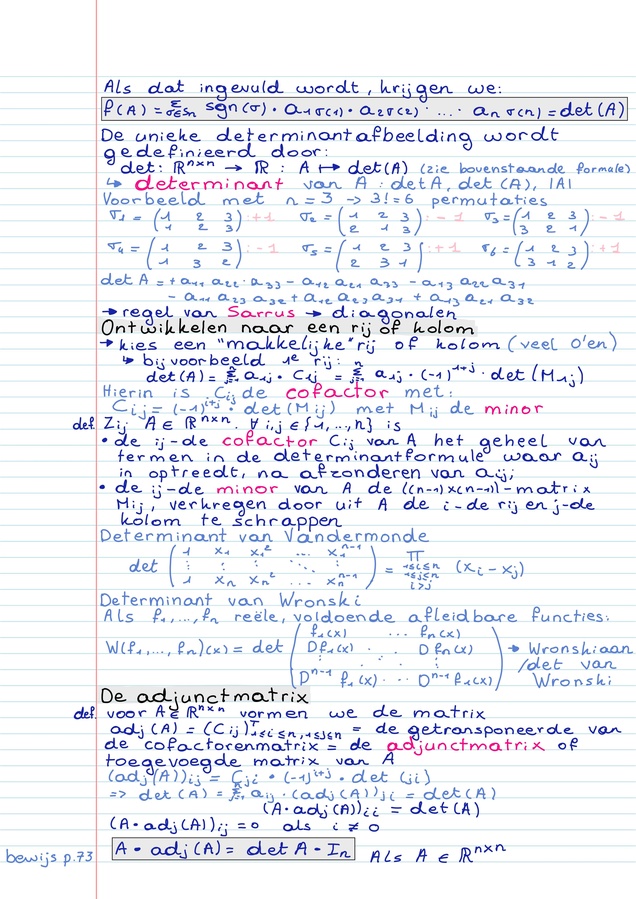 Als dat ingevuld wordt, krijgen we:
f(A) = Σ σ∈Sn sgn(σ) · a1σ(1) · a2σ(2) · ... · anσ(n) = det(A)
De unieke determinantafbeelding wordt
gedefinieerd door:
det: ℝⁿˣⁿ → ℝ : A ↦ det(A) (zie bovenstaande formule)
↳ determinant van A : det A, det (A), |A|
Voorbeeld met n = 3 → 3! = 6 permutaties
σ1 = (1 2 3 / 1 2 3) : +1 σ2 = (1 2 3 / 2 1 3) : -1 σ3 = (1 2 3 / 3 2 1) : -1
σ4 = (1 2 3 / 1 3 2) : -1 σ5 = (1 2 3 / 2 3 1) : +1 σ6 = (1 2 3 / 3 1 2) : +1
det A = +a11 a22 · a33 - a12 a21 a33 - a13 a22 a31
- a11 a23 a32 + a12 a23 a31 + a13 a21 a32
→ regel van Sarrus → diagonalen
Ontwikkelen naar een rij of kolom
→ kies een "makkelijke" rij of kolom (veel 0'en)
↳ bijvoorbeeld 1e rij:
det(A) = Σ a1j · C1j = Σ a1j · (-1)^1+j · det(M1j)
Hierin is Cij de cofactor met:
Cij = (-1)^i+j · det(Mij) met Mij de minor
def. Zij A ∈ ℝⁿˣⁿ. ∀ i,j ∈ {1,...,n} is
• de ij-de cofactor Cij van A het geheel van
termen in de determinantformule waar aij
in optreedt, na afzonderen van aij;
• de ij-de minor van A de ((n-1)×(n-1))-matrix
Mij, verkregen door uit A de i-de rij en j-de
kolom te schrappen
Determinant van Vandermonde
det (1 x1 x1² ... x1ⁿ⁻¹ / ⋮ ⋮ ⋮ ⋱ ⋮ / 1 xn xn² ... xnⁿ⁻¹) = Π 1≤i≤n 1≤j≤n i>j (xi - xj)
Determinant van Wronski
Als f1,...,fn reële, voldoende afleidbare functies:
W(f1,...,fn)(x) = det (f1(x) ... fn(x) / Df1(x) ... Dfn(x) / ⋮ ⋱ ⋮ / Dⁿ⁻¹ f1(x) ... Dⁿ⁻¹ fn(x)) → Wronskiaan
/det van
Wronski
De adjunctmatrix
def. voor A ∈ ℝⁿˣⁿ vormen we de matrix
adj(A) = (Cij)ᵀ 1≤i≤n, 1≤j≤n = de getransponeerde van
de cofactorenmatrix = de adjunctmatrix of
toegevoegde matrix van A
(adj(A))ij = Cji · (-1)^i+j · det (ji)
=> det(A) = Σ aij · (adj(A))ji = det(A)
(A · adj(A))ii = det(A)
(A · adj(A))ij = 0 als i ≠ 0
bewijs p.73 A · adj(A) = det A · In Als A ∈ ℝⁿˣⁿ